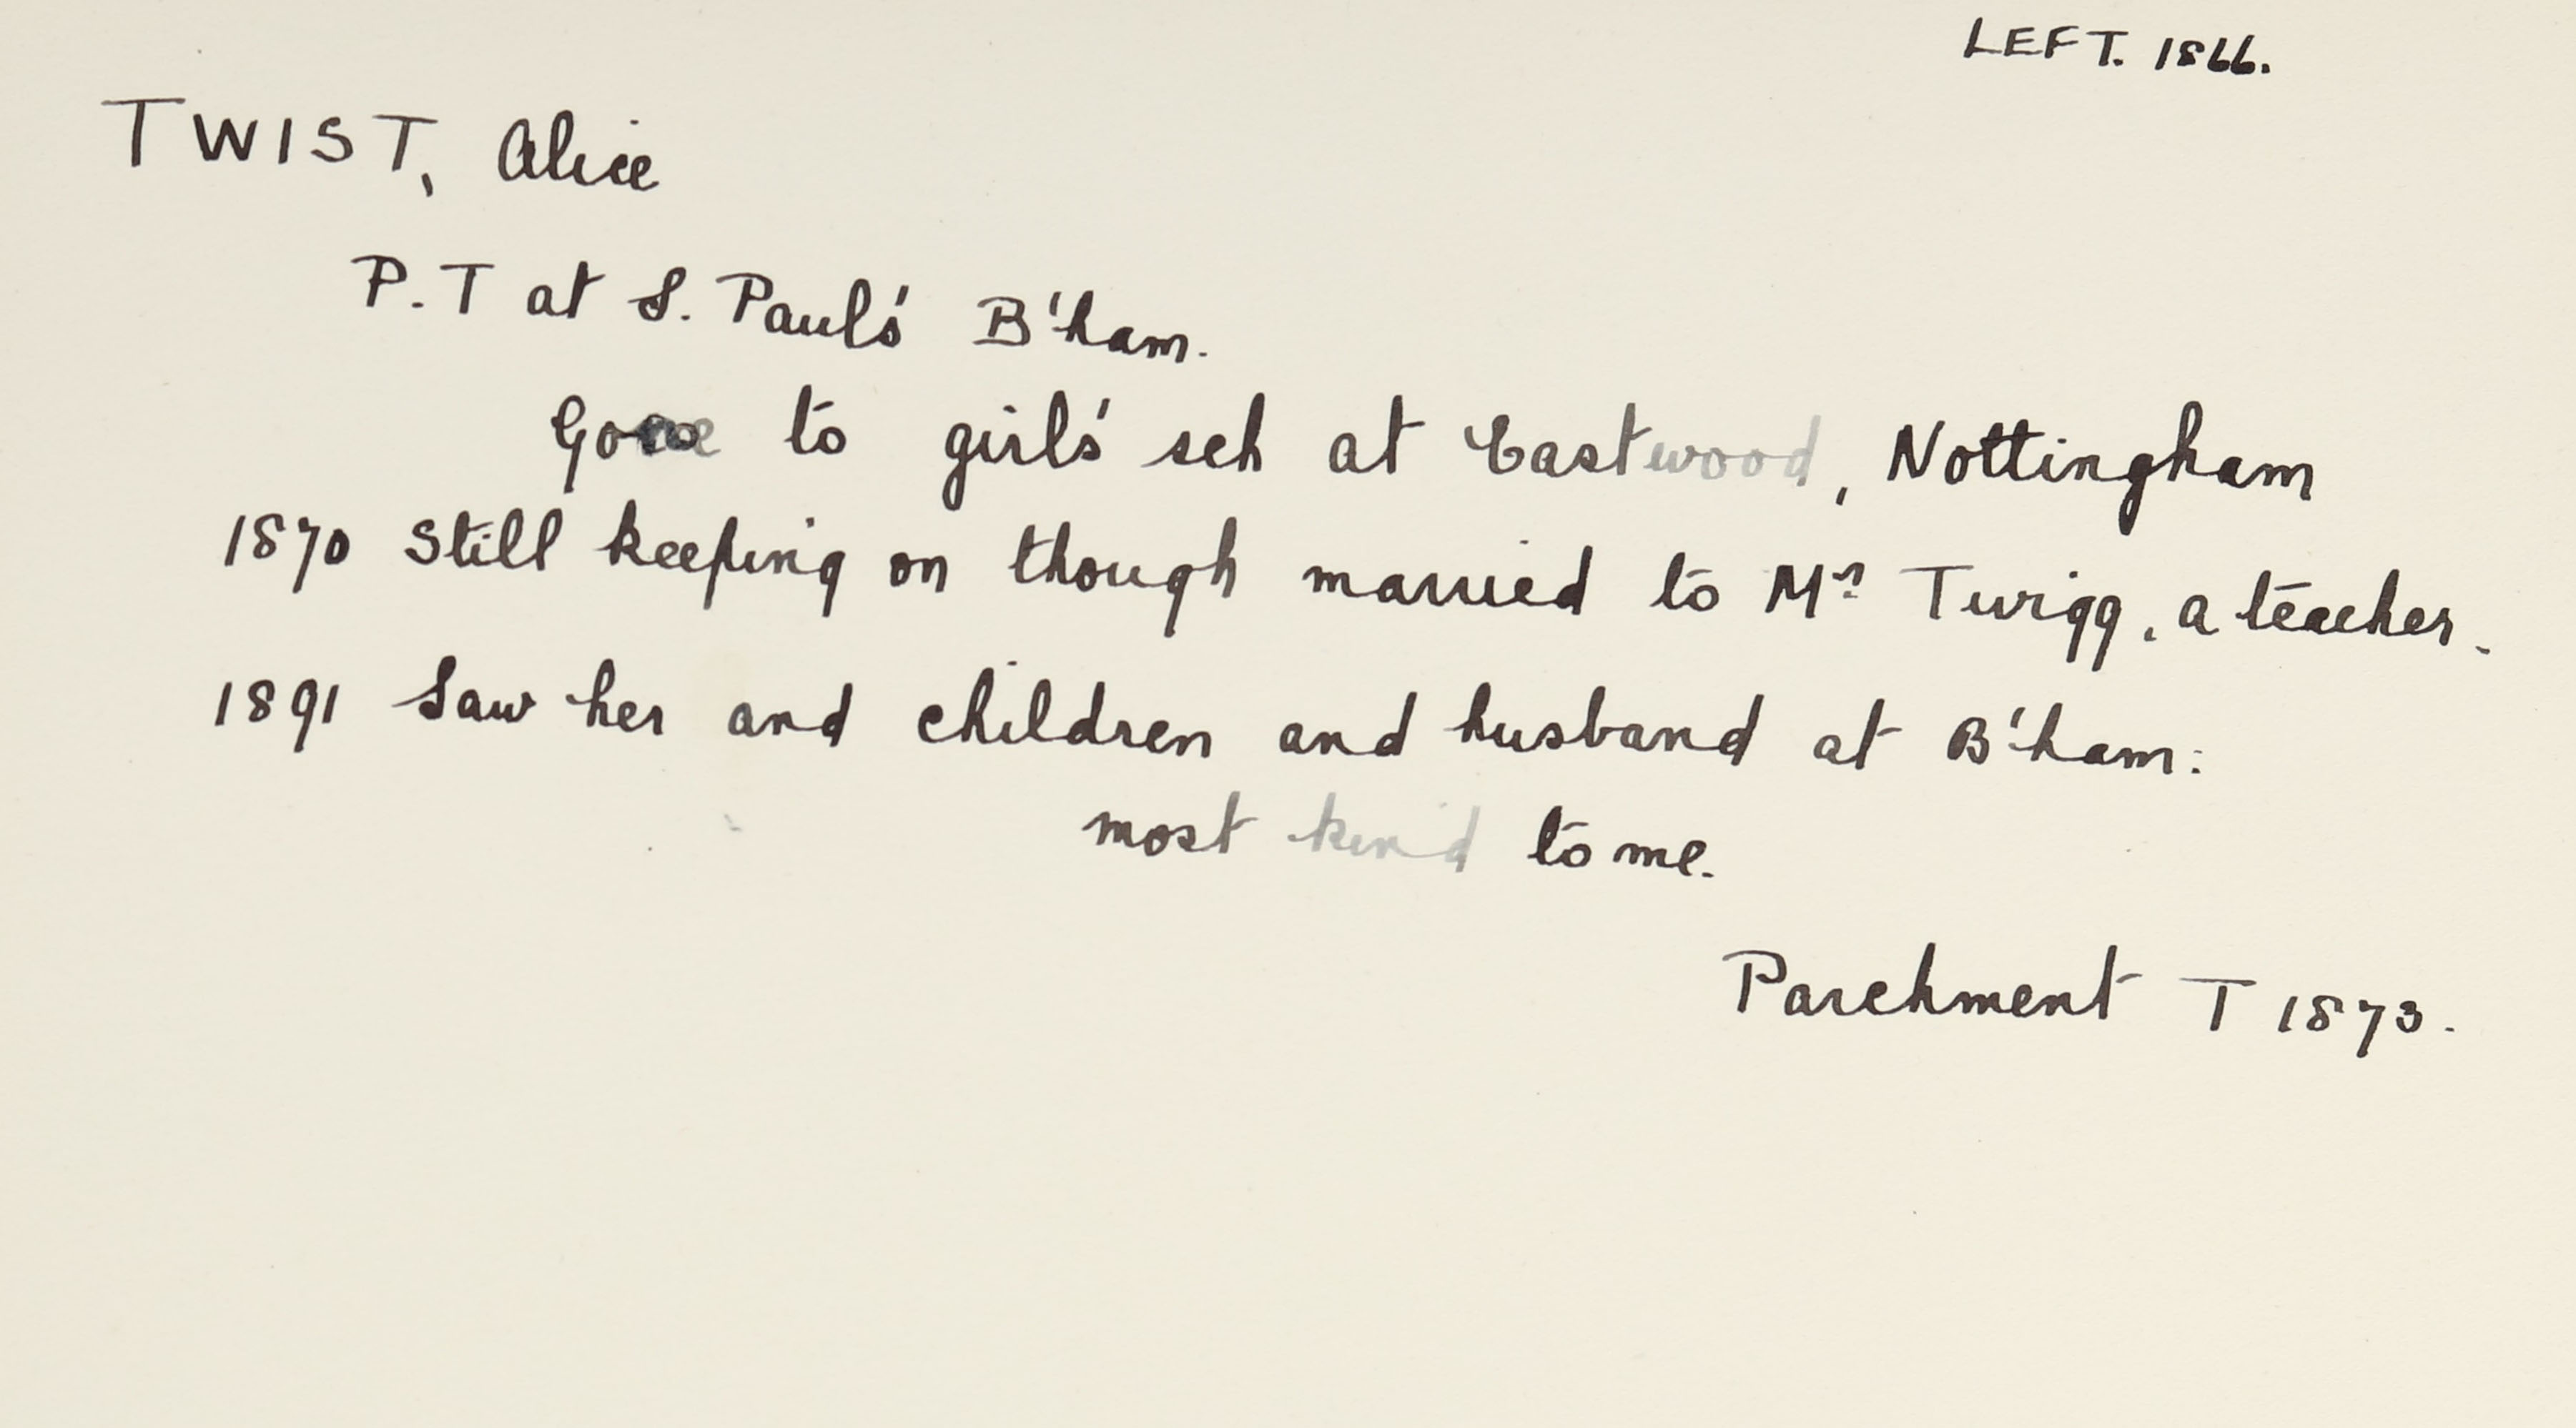 LEFT. 1866.
TWIST, Alice
P.T at S. Paul's B'ham.
Gone to girl's sch at Eastwood, Nottingham
1870 Still keeping on though married to Mr Twigg, a teacher.
1891 Saw her and children and husband at B'ham:
most kind to me.
Parchment T 1873.